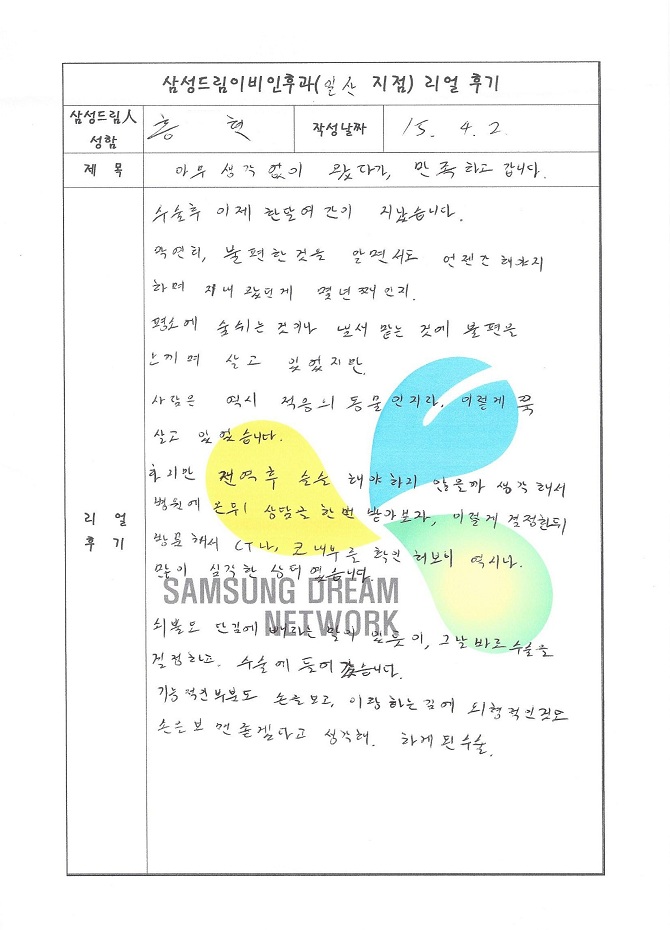 삼성드림이비인후과(일산 지점) 리얼 후기
삼성드림人
성함
홍 혁
작성날짜
15. 4. 2.
제 목
아무 생각 없이 왔다가, 만족하고 갑니다.
리 얼
후 기
수술후 이제 한달여 간이 지났습니다.
막연히, 불편한것을 알면서도 언젠간 해야지
하며 지내 왔던게 몇년째인지.
평소에 숨쉬는 것이나 냄새 맡는 것에 불편을
느끼며 살고 있었지만
사람은 역시 적응의 동물인지라, 이렇게 쭉
살고 있었습니다.
하지만 전역후 수술 해야하지 않을까 생각해서
병원에 문득 상담을 한번 받아보자, 이렇게 결정한뒤
방문해서 CT나, 코내부를 확인 해보니 역시나.
많이 심각한 상태였습니다.
SAMSUNG DREAM
NETWORK
쇠불도 단김에 빼라는 말이 있듯이, 그날 바로 수술을
결정하고. 수술에 들어갔습니다.
기능적인부분도 손을보고, 이왕하는김에 외형적인것도
손은보면 좋겠다고 생각해. 하게된수술.